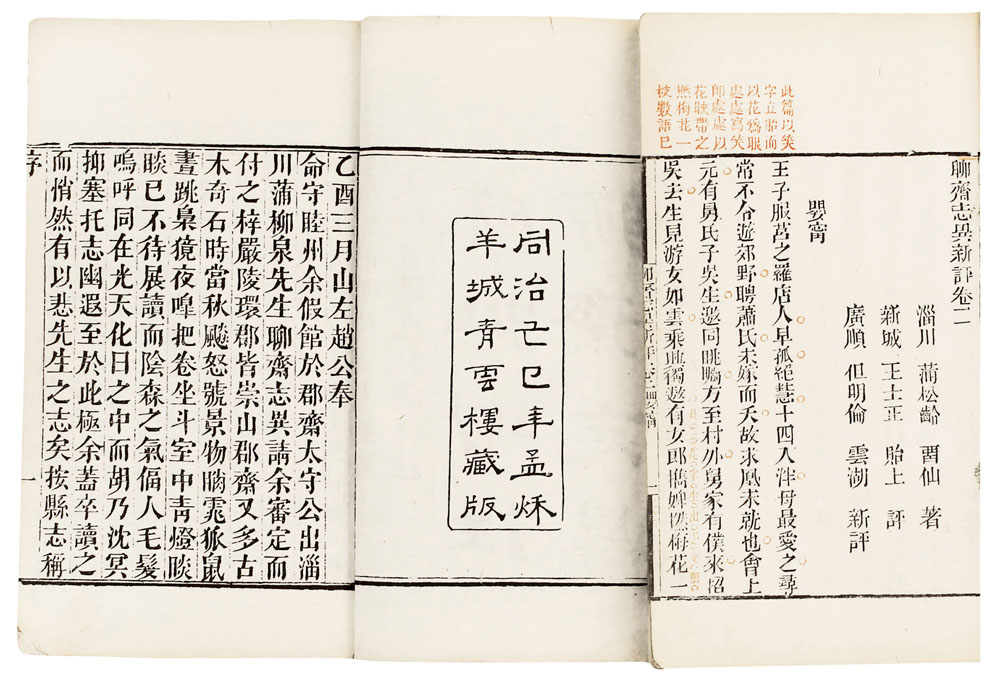 此篇以笑
字立胎而
以花為眼
處處寫笑
即處處以
花映帶之
撚梅花一
枝數語已
聊齋志異新評卷二
淄川 蒲松齡 畱仙 著
新城 王士正 貽上 評
廣順 但明倫 雲湖 新評
嬰甯
王子服莒之羅店人早孤絕慧十四入泮母最愛之尋
常不令遊郊野聘蕭氏未嫁而夭故求凰未就也會上
元有舅氏子吳生邀同眺矚方至村外舅家有僕來招
吳去生見游女如雲乘興獨遨有女郎攜婢撚梅花一
同治己巳年孟秌
羊城青雲樓藏版
乙酉三月山左趙公奉
命守睦州余假館於郡齋太守公出淄
川蒲柳泉先生聊齋志異請余審定而
付之梓嚴陵環郡皆崇山郡齋又多古
木奇石時當秋飈怒號景物睄窱狐鼠
晝跳梟獍夜嘷把卷坐斗室中靑燈睒
睒已不待展讀而陰森之氣偪人毛髮
嗚呼同在光天化日之中而胡乃沈冥
抑塞托志幽遐至於此極余蓋卒讀之
而悄然有以悲先生之志矣按縣志稱
序
一